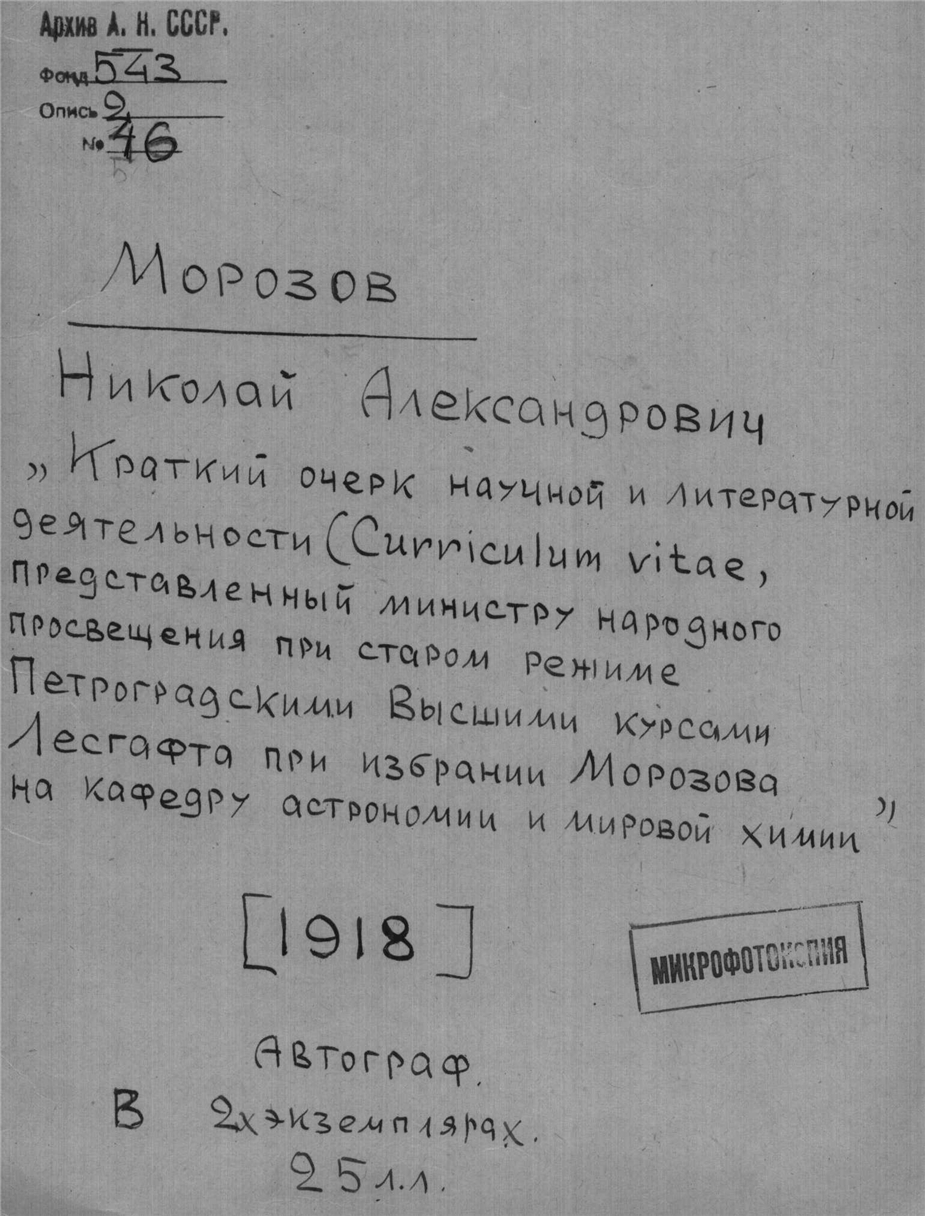 Архив А. Н. СССР.
Фонд 543
Опись 2
№ 46
Морозов
Николай Александрович
„Краткий очерк научной и литературной
деятельности (Curriculum vitae,
представленный министру народного
просвещения при старом режиме
Петроградскими Высшими курсами
Лесгафта при избрании Морозова
на кафедру астрономии и мировой химии”
[1918]
МИКРОФОТОКОПИЯ
Автограф.
В 2х экземплярах.
25 л.л.